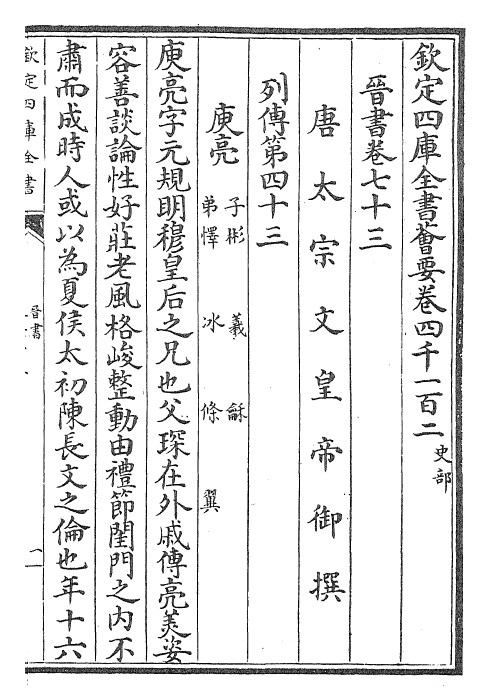 欽定四庫全書薈要卷四千一百二 史部
晉書卷七十三
唐太宗文皇帝御撰
列傳第四十三
庾亮 子彬 羲 龢 弟懌 冰 條 翼
庾亮字元規明穆皇后之兄也父琛在外戚傳亮美姿
容善談論性好莊老風格峻整動由禮節閨門之内不
肅而成時人或以為夏侯太初陳長文之倫也年十六
欽定四庫全書
晉書